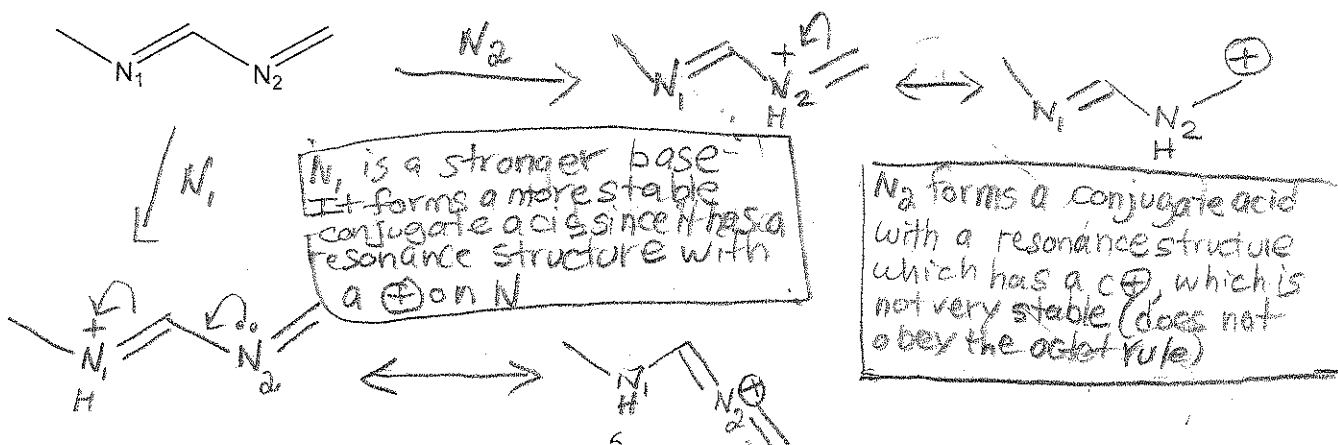 N1 N2
N2
N1 N2 + H
N1 N2 H +
N1
N1 is a stronger base-
It forms a more stable
conjugate acis since it has a
resonance structure with
a ⊕ on N
N2 forms a conjugate acid
with a resonance structure
which has a C⊕, which is
not very stable (does not
obey the octet rule)
+ N1 H N2
N1 H N2 ⊕